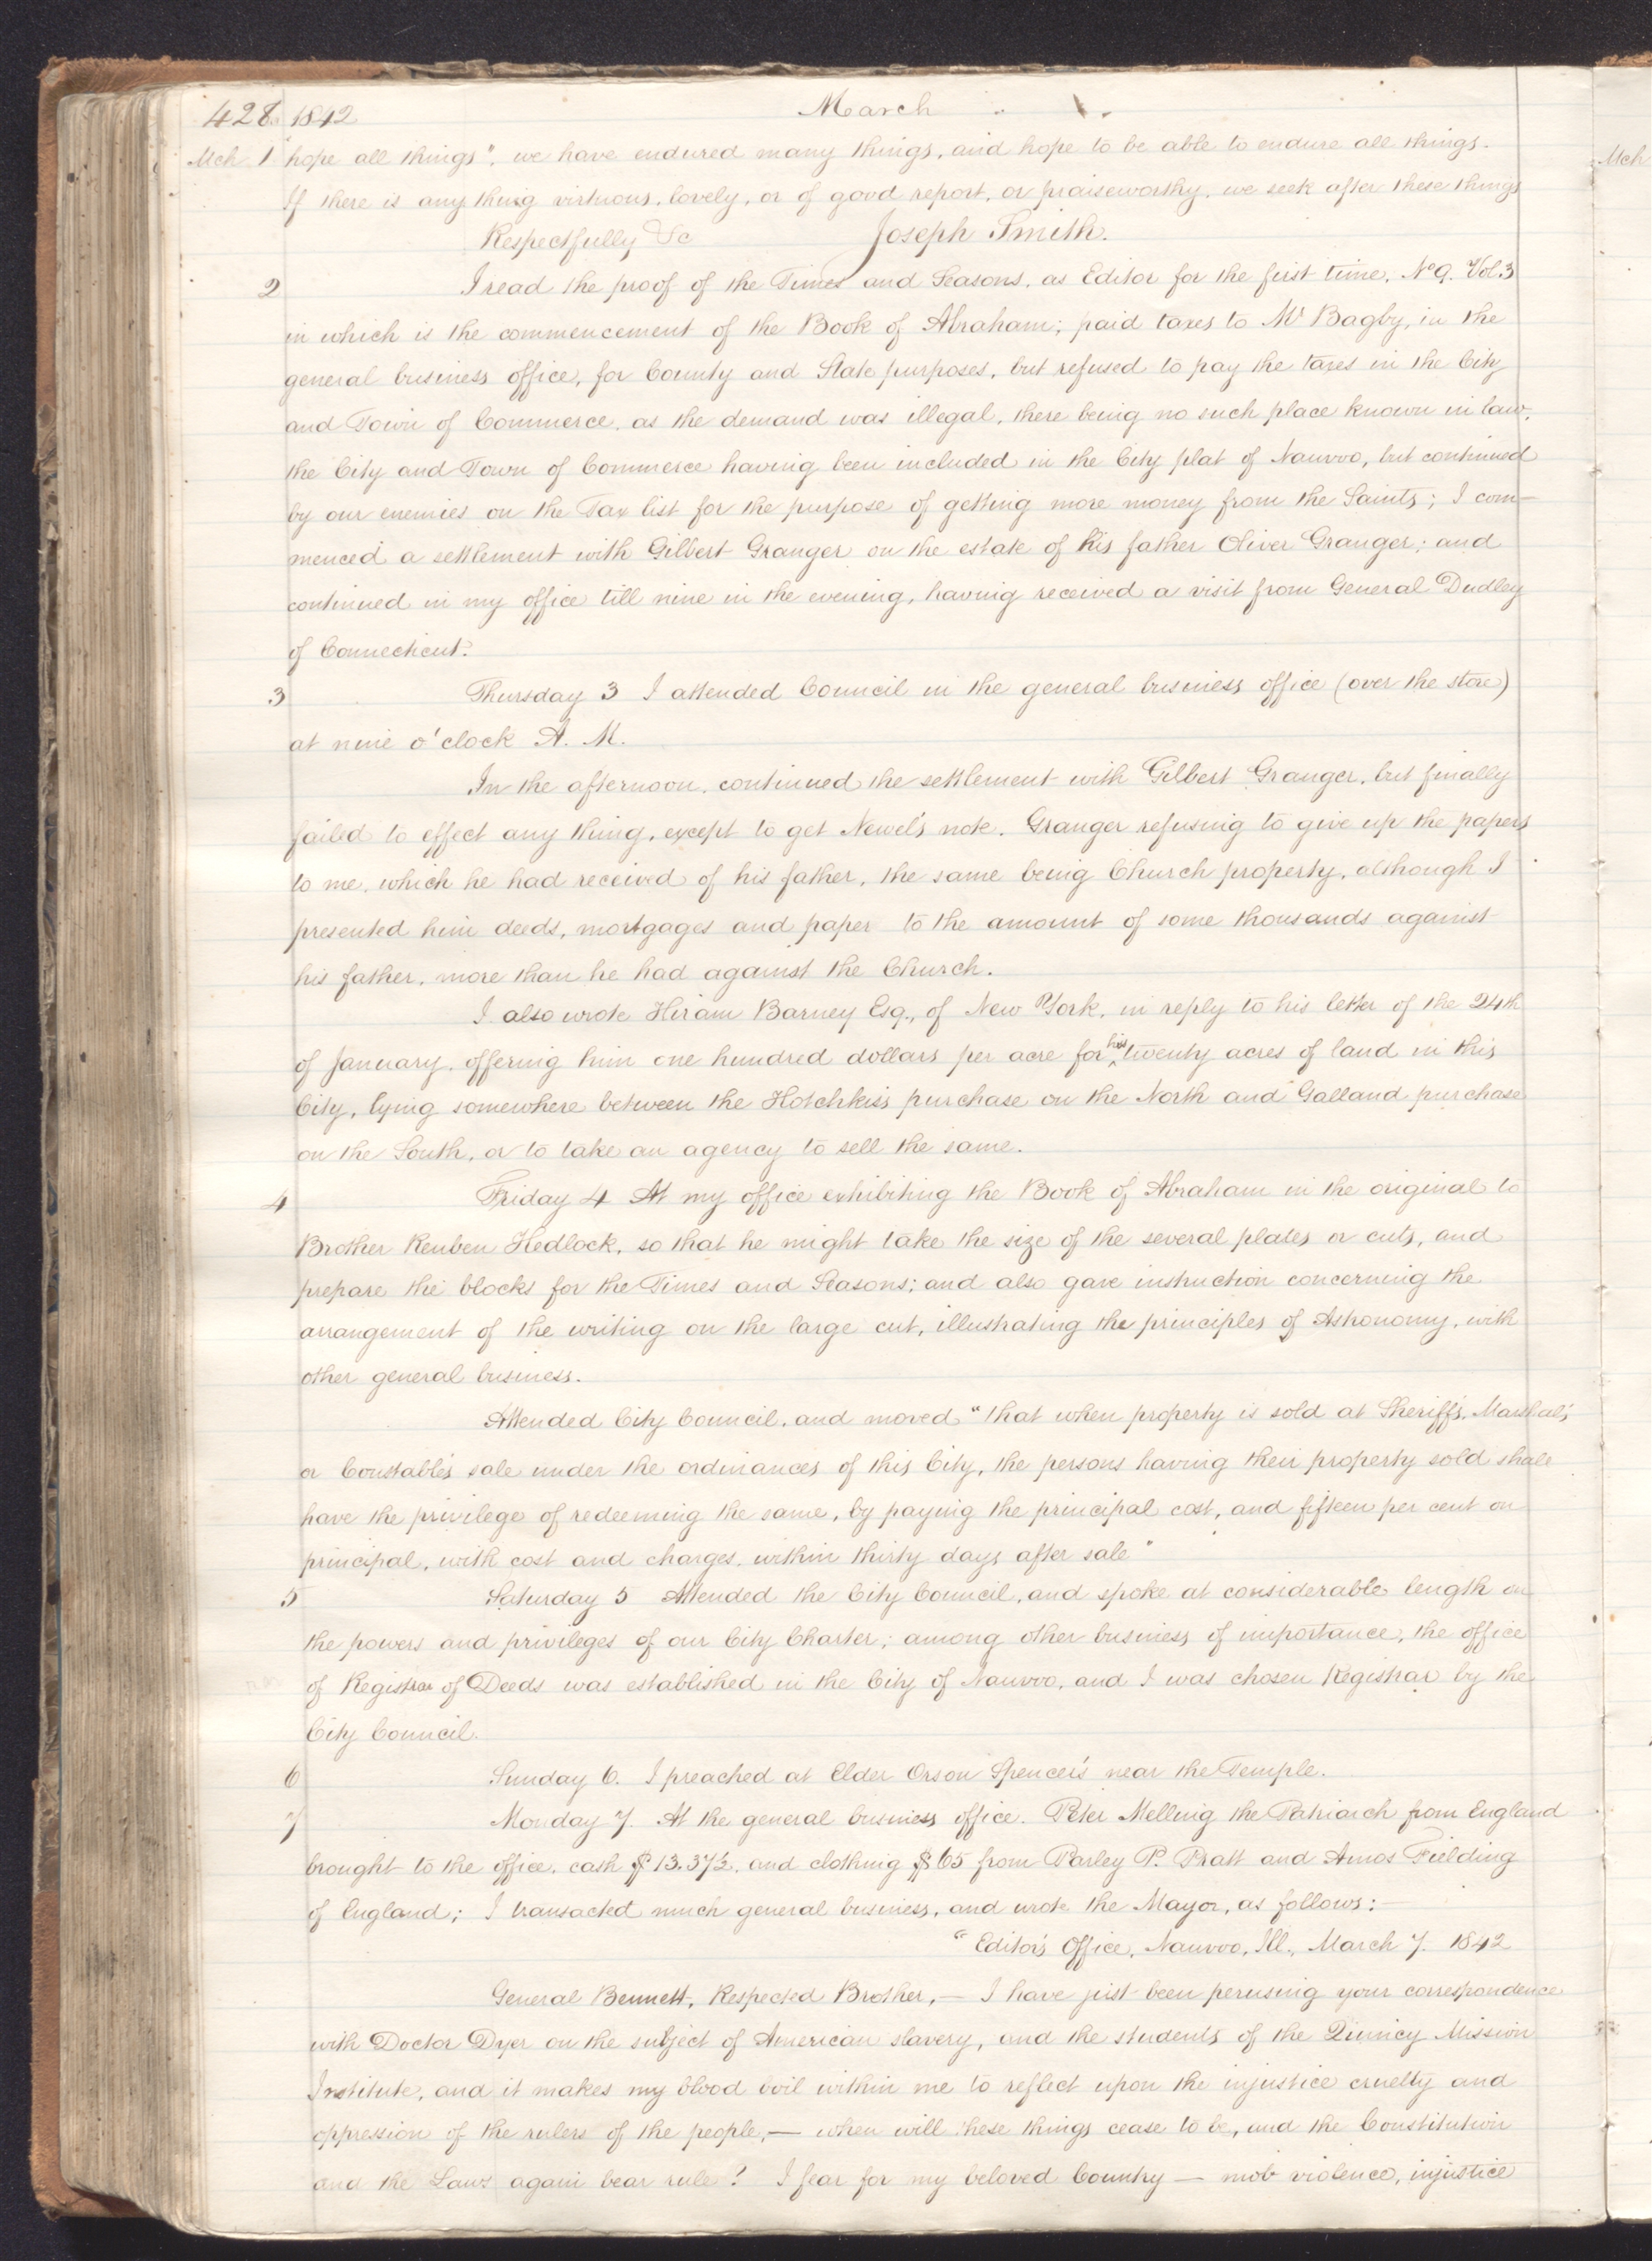 428. 1842 March
Mch 1 hope all things", we have endured many things, and hope to be able to endure all things.
If there is any thing virtuous, lovely, or of good report, or praiseworthy, we seek after these things
Respectfully &c Joseph Smith.
2 I read the proof of the Times and Seasons, as Editor for the first time, No 9. Vol. 3
in which is the commencement of the Book of Abraham; paid taxes to Mr Bagby, in the
general business office, for County and State purposes, but refused to pay the taxes in the City
and Town of Commerce, as the demand was illegal, there being no such place known in law,
the City and Town of Commerce having been included in the City plat of Nauvoo, but continued
by our enemies on the Tax list for the purpose of getting more money from the Saints; I com-
menced a settlement with Gilbert Granger on the estate of his father Oliver Granger; and
continued in my office till nine in the evening, having received a visit from General Dudley
of Connecticut.
3 Thursday 3 I attended Council in the general business office (over the store)
at nine o'clock A. M.
In the afternoon, continued the settlement with Gilbert Granger, but finally
failed to effect any thing, except to get Newel's note. Granger refusing to give up the papers
to me, which he had received of his father, the same being Church property, although I
presented him deeds, mortgages and paper to the amount of some thousands against
his father, more than he had against the Church.
I also wrote Hiram Barney Esq., of New York, in reply to his letter of the 24th
of January, offering him one hundred dollars per acre for his twenty acres of land in this
City, lying somewhere between the Hotchkiss purchase on the North and Galland purchase
on the South, or to take an agency to sell the same.
4 Friday 4 At my office exhibiting the Book of Abraham in the original to
Brother Reuben Hedlock, so that he might take the size of the several plates or cuts, and
prepare the blocks for the Times and Seasons; and also gave instruction concerning the
arrangement of the writing on the large cut, illustrating the principles of Astronomy, with
other general business.
Attended City Council, and moved "that when property is sold at Sheriff's, Marshal's,
or Constable's sale under the ordinances of this City, the persons having their property sold shall
have the privilege of redeeming the same, by paying the principal cost, and fifteen per cent on
principal, with cost and charges, within thirty days after sale"
5 Saturday 5 Attended the City Council, and spoke at considerable length on
the powers and privileges of our City Charter; among other business of importance, the office
of Registrar of Deeds was established in the City of Nauvoo, and I was chosen Registrar by the
City Council.
6 Sunday 6. I preached at Elder Orson Spencer's near the Temple.
7 Monday 7. At the general business office. Peter Melling the Patriarch from England
brought to the office, cash $13.37½, and clothing $65 from Parley P. Pratt and Amos Fielding
of England; I transacted much general business, and wrote the Mayor, as follows:—
"Editor's Office, Nauvoo, Ill., March 7. 1842
General Bennett, Respected Brother,— I have just been perusing your correspondence
with Doctor Dyer on the subject of American slavery, and the students of the Quincy Mission
Institute, and it makes my blood boil within me to reflect upon the injustice cruelty and
oppression of the rulers of the people,— when will these things cease to be, and the Constitution
and the Laws again bear rule? I fear for my beloved Country — mob violence, injustice
Mch